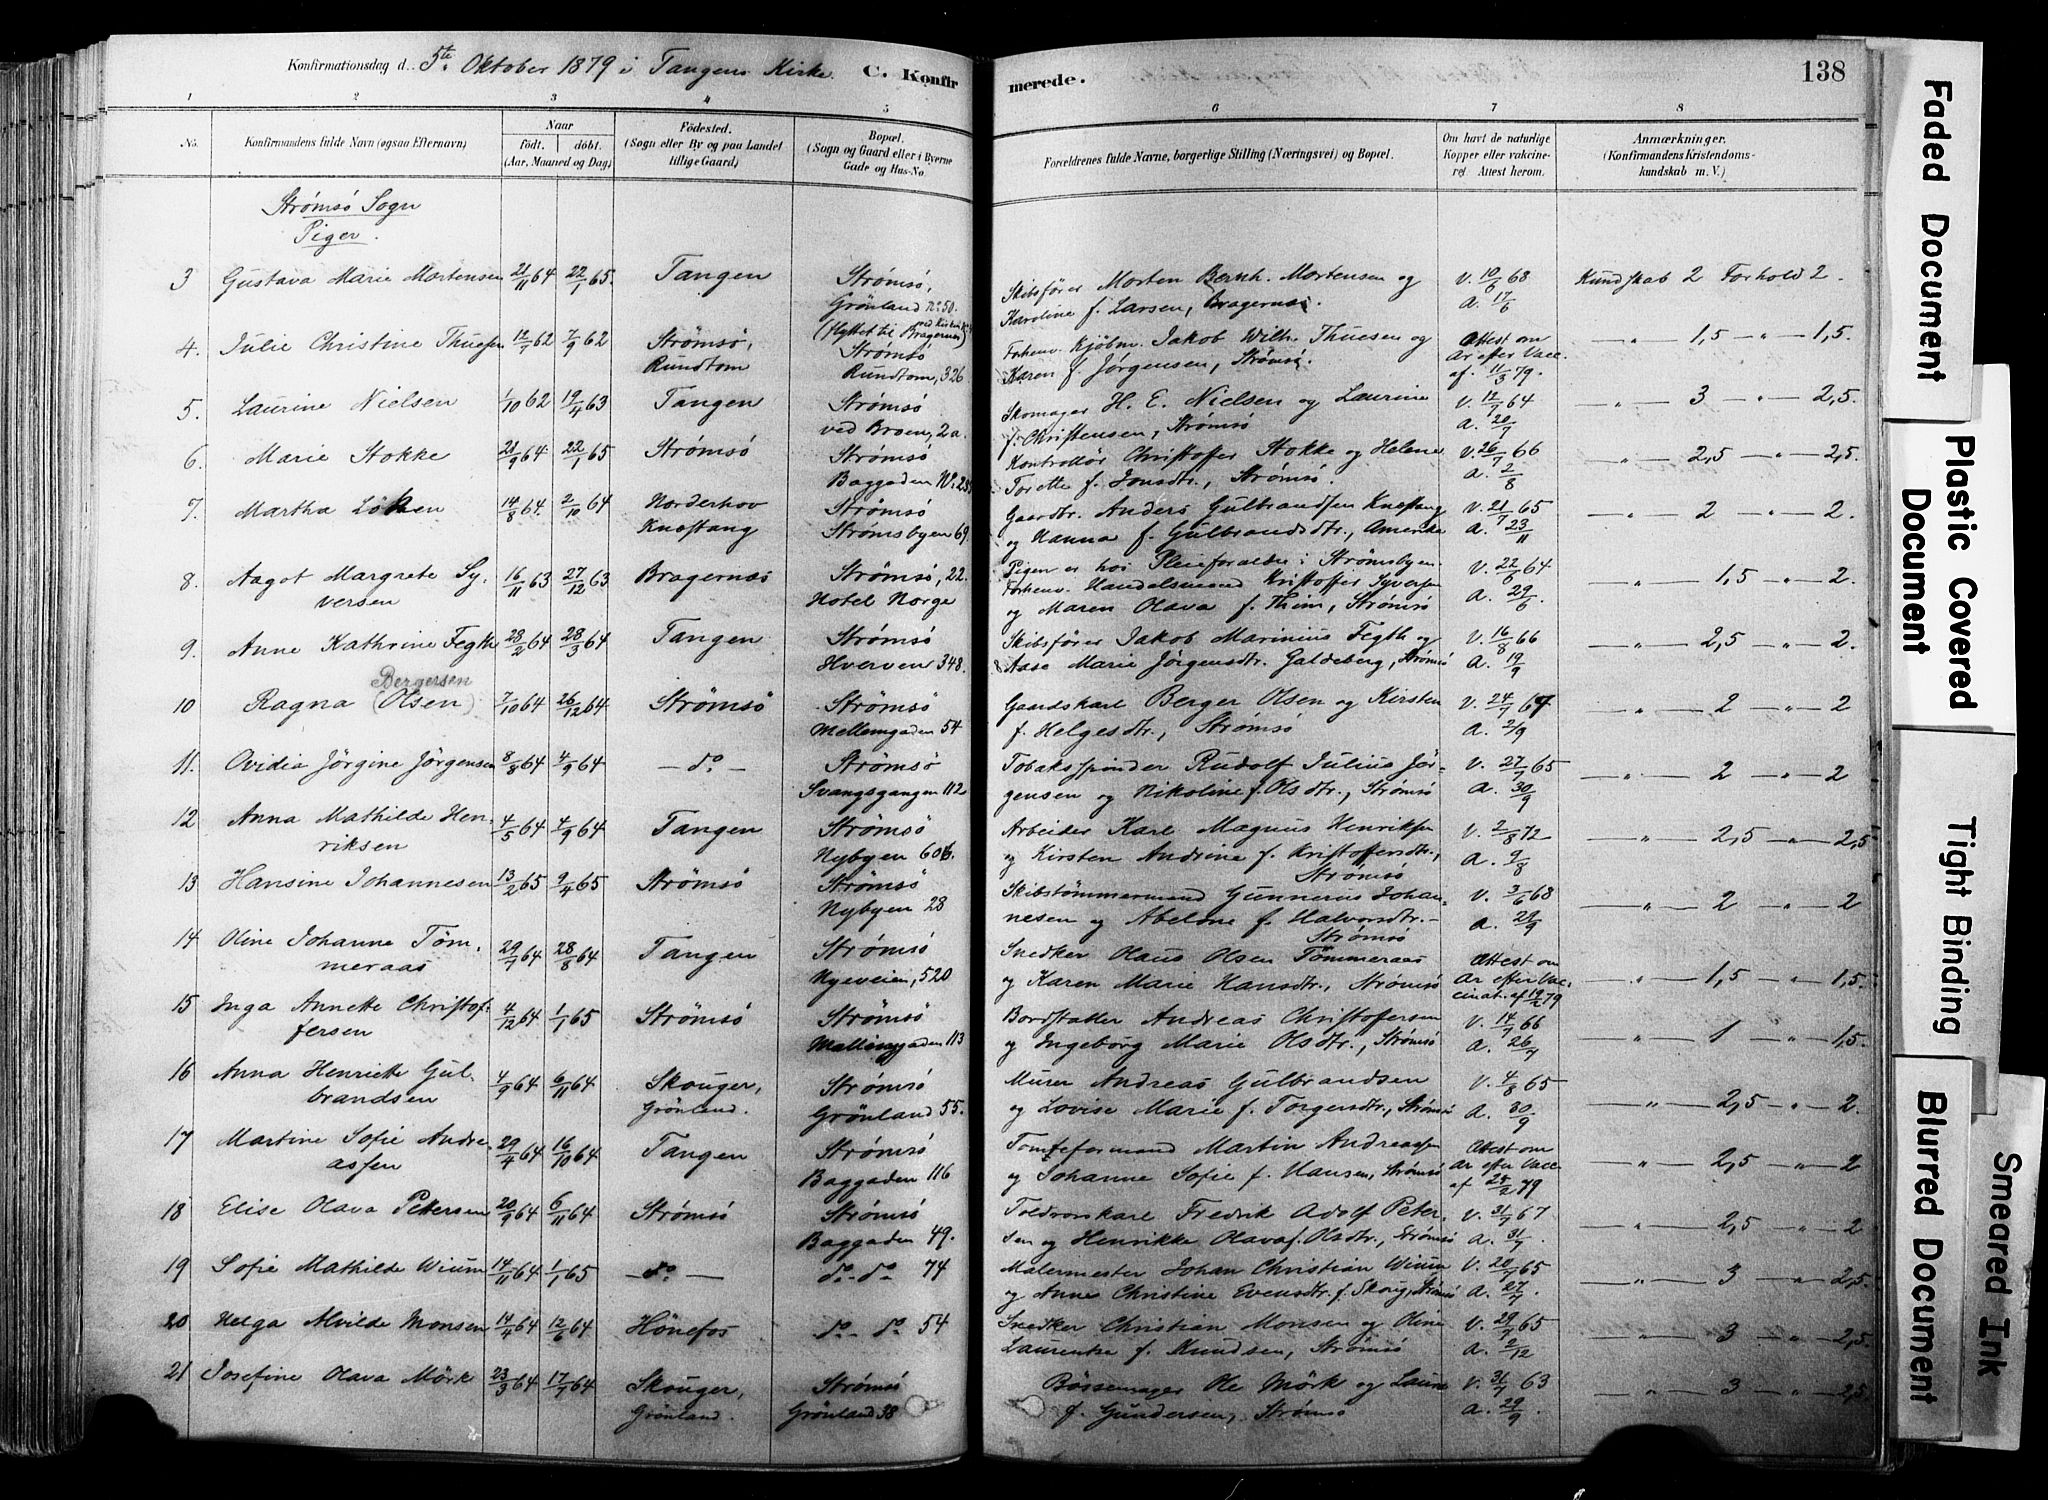 Konfirmationsdag d. 5te Oktober 1879 i Tangens Kirke. C. Konfirmerede. 138
1 2 3 4 5 6 7 8
No.
Konfirmandens fulde Navn (ogsaa Efternavn)
Naar
født. døbt.
(Aar, Maaned og Dag)
Fødested.
(Sogn eller By og paa Landet
tillige Gaard)
Bopæl.
(Sogn og Gaard eller i Byerne
Gade og Hus-No.
Forældrenes fulde Navne, borgerlige Stilling (Næringsvei) og Bopæl.
Om havt de naturlige
Kopper eller vakcine-
ret. Attest herom.
Anmærkninger.
(Konfirmandens Kristendoms-
kundskab m. V.)
Strømsö Sogn
Piger.
3 Gustava Marie Mortensen 21/11 64 22/1 65. Tangen Strømsö, Grönland No 50. (flyttet til Bragernæs) Skibsfører Morten Bernh. Mortensen og
Karoline f. Larsen, Bragernæs. V. 10/6 68 A. 17/6 Kundskab 2 Forhold 2.
4. Julie Christine Thuesen 12/7 62 7/9 62 Strømsö, Rundtom Strømsö Rundtom, 326 Forhenv. Kjöbm. Jakob Wilh. Thuesen og
Karen f. Jörgensen, Strømsö. Attest om Ar efter Vacc. af. 11/3 79. -"- 1,5 -"- 1,5.
5. Laurine Nielsen 1/10 62 19/4 63 Tangen Strømsö ved Broen, 2a. Skomager H. E. Nielsen og Laurine
f. Christensen, Strømsö V. 12/7 64 A. 20/7 -"- 3 -"- 2,5.
6. Marie Stokke 21/9 64 22/1 65 Strømsö Strømsö Baggaden No. Kontrollör Christoffer Stokke og Helene
Torette f. Jonsdtr., Strømsö. V. 26/7 66 A. 2/8 -"- 2,5 -"- 2,5.
7. Martha Löken 14/8 64. 2/10 64 Norderhov Knestang Strømsö Strømsbyen 69. Gaardbr. Anders Gulbrandsen Knestang
og Hanna f. Gulbrandsdtr., Amerika
Pigen er hos Pleieforældre i Strømsbyen. V. 21/7 65 A. 23/11 -"- 2 -"- 2.
8. Aagot Margrete Sy-
versen 16/11 63 27/12 63 Bragernæs Strømsö, 22. Hotel Norge Forhenv. Handelsmand Kristoffer Syversen
og Maren Olava f. Thim, Strømsö V. 22/6 64 A. 29/6. -"- 1,5 -"- 2.
9. Anne Kathrine Fegth 28/2 64 28/3 64 Tangen Strømsö Hverven 348. Skibsfører Jakob Marinius Fegth og
Aase Marie Jörgensdtr. Galdeberg, Strømsö V. 16/8 66 A. 19/9 -"- 2,5 -"- 2.
10 Ragna (Olsen) Bergersen 7/10 64 26/12 64 Strømsö Strømsö Mellemgaden 54 Gaardskarl Berger Olsen og Kirsten
f. Helgesdtr., Strømsö V. 24/7 67 A. 2/9 -"- 2 -"- 2
11. Ovidia Jörgine Jörgensen 8/8 64 4/9 64 - do - Strømsö Svangsgangen 112 Tobaksspinder Rudolf Julius Jör-
gensen og Nikoline f. Olsdtr., Strømsö V. 27/7 65 A. 30/9 -"- 2 -"- 2
12 Anna Mathilde Hen-
riksen 4/5 64 4/9 64 Tangen Strømsö Nybyen 606. Arbeider Karl Magnus Henriksen
og Kirsten Andrine f. Kristoffersdtr.,
Strømsö V. 2/8 72 A. 9/8 -"- 2,5 -"- 2,5
13 Hansine Johannesen 13/2 65 9/4 65 Strømsö Strømsö Nybyen 28 Skibstömmermand Gunnerius Johan-
nesen og Abelone f. Halvorsdtr.-
Strømsö V. 3/6 68 A. 21/9 -"- 2 -"- 2
14 Oline Johanne Töm-
meraas 29/7 64 28/8 64 Tangen Strømsö Nyeveien, 520 Snedker Olaus Olsen Tömmeraas
og Karen Marie Hansdtr., Strømsö Attest om Ar efter Vac-
cinat. af 19/2 79 -"- 1,5 -"- 1,5.
15 Inga Annette Christof-
fersen 4/12 64 1/1 65 Strømsö Strømsö Mellemgaden 113 Bordstabler Andreas Christofersen
og Ingeborg Marie Olsdtr., Strømsö V. 14/7 66 A. 26/7 -"- 1 -"- 1,5.
16 Anna Henriette Gul-
brandsen 4/9 64 6/11 64 Skouger, Grönland. Strømsö Grönland 55. Murer Andreas Gulbrandsen
og Lovise Marie f. Torgersdtr., Strømsö V. 4/8 65 A. 30/9 -"- 2,5 -"- 2.
17 Martine Sofie Andre-
assen 29/4 64 16/10 64 Tangen Strømsö Baggaden 116 Tomteformand Martin Andreassen
og Johanne Sofie f. Hansen, Strømsö Attest om Ar efter Vacc. af 24/2 79 -"- 2,5 -"- 2
18 Elise Olava Petersen 20/9 64 6/11 64 Strømsö Strømsö Baggaden 49. Toldrorskarl Fredrik Adolf Peter-
sen og Henrikke Olava f. Olsdtr., Strømsö V. 31/7 67 A. 31/7. -"- 2,5 -"- 2
19 Sofie Mathilde Wium 14/11 64 1/1 65 - do - do - do 74 Malermester Johan Christian Wium
og Anne Christine Evensdtr. f. Skoug, Strømsö V. 20/7 65 A. 27/7 -"- 3 -"- 2,5.
20 Helga Alvilde Monsen 14/4 64 12/6 64 Hönefos do - do 54 Snedker Christian Monsen og Oline
Laurentze f. Knudsen, Strømsö V. 29/7 65 A. 2/12 -"- 3 -"- 2,5.
21 Josefine Olava Mörk 23/3 64 17/7 64 Skouger, Grönland. Strømsö Grönland 38 Bössemager Ole Mörk og Laura
f. Gundersen, Strømsö V. 31/7 63 A. 29/9. -"- 3 -"- 2,5
Faded Document
Plastic Covered Document
Tight Binding
Blurred Document
Smeared Ink